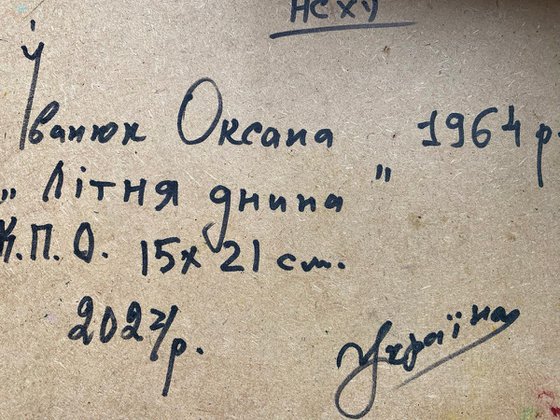 НСХУ
Іванюк Оксана 1964 р.
„Літня днина"
К.П.О. 15х21 см.
2024 р.
Україна